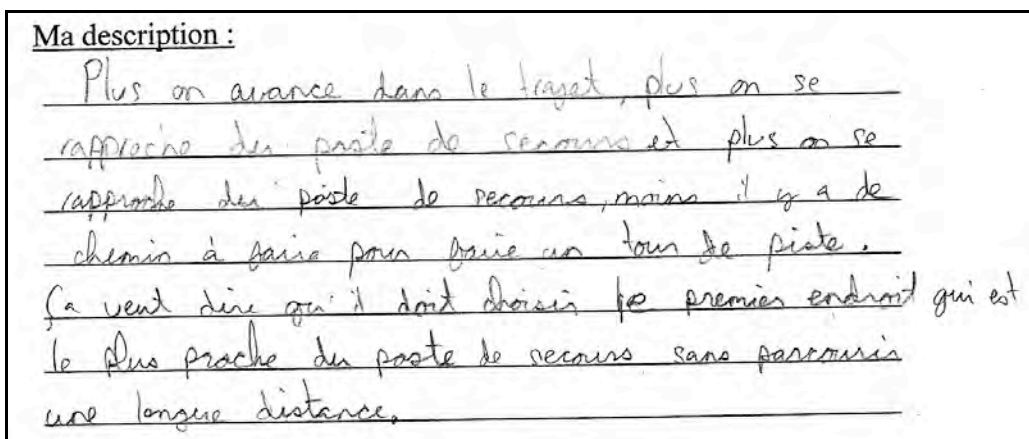 Ma description :
Plus on avance dans le trajet, plus on se
rapproche du poste de secours et plus on se
rapproche du poste de secours, moins il y a de
chemin à faire pour faire un tour de piste.
Ça veut dire qu'il doit choisir le premier endroit qui est
le plus proche du poste de secours sans parcourir
une longue distance.